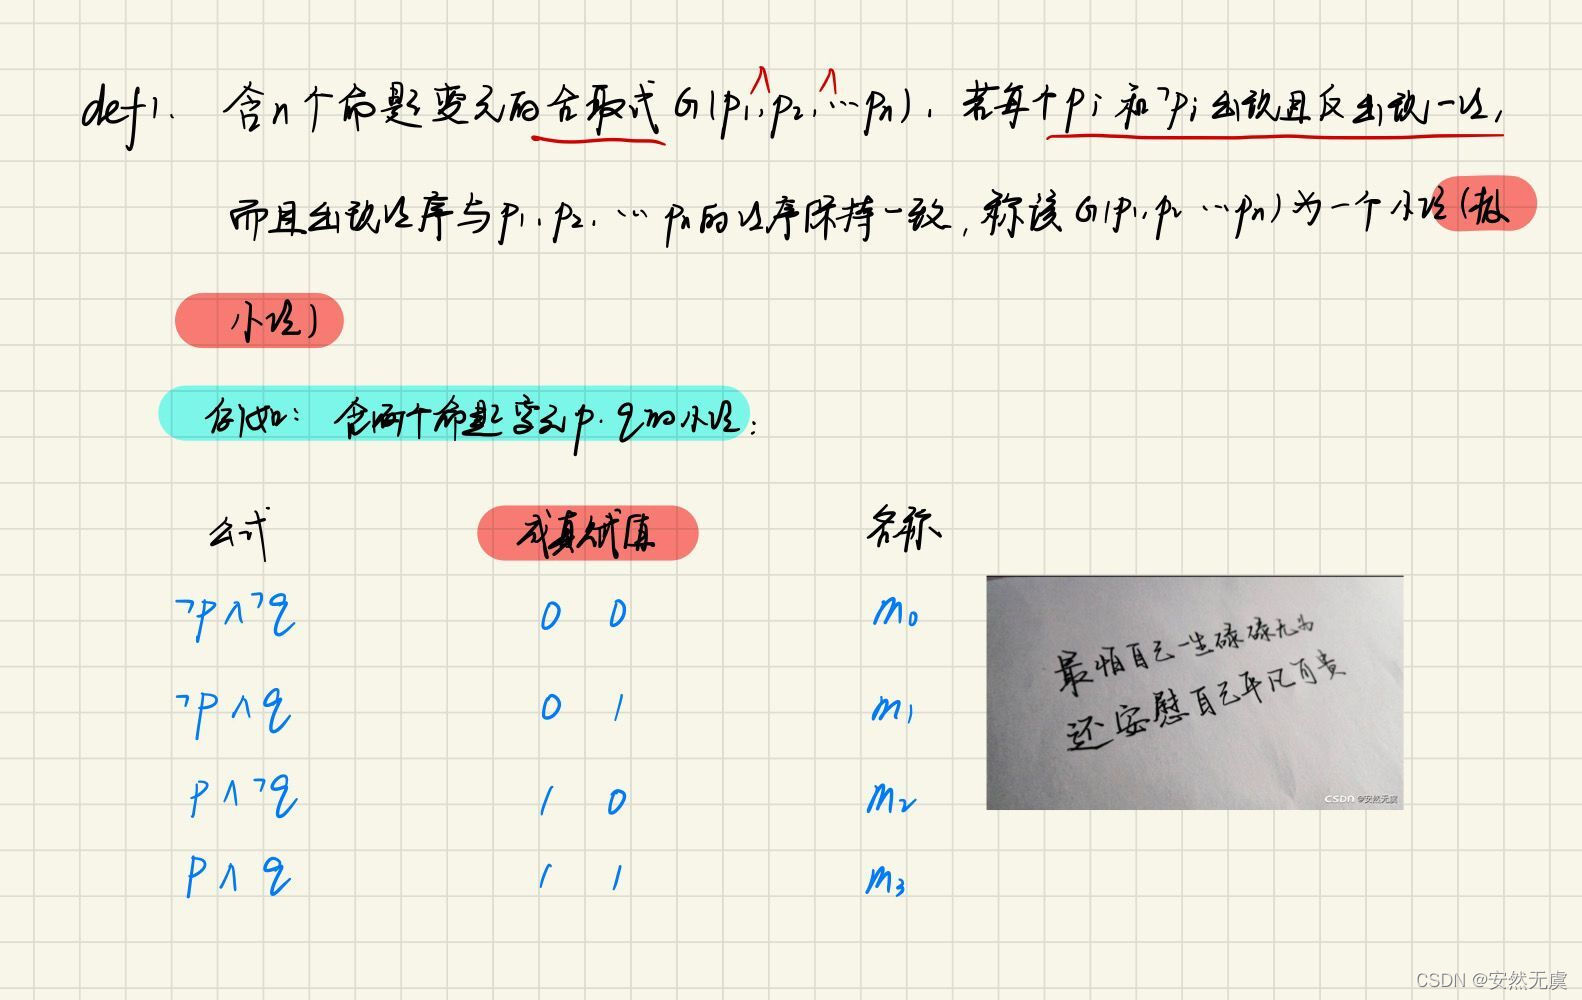 def1. 含n个命题变元的合取式 G(p₁,∧p₂,∧…pₙ),若每个pi和¬pi出现且仅出现一次,
而且出现次序与p₁,p₂,…pₙ的次序保持一致,称该G(p₁,p₂…pₙ)为一个小项(极
小项)
例如:含两个命题变元p.q的小项:
公式 成真赋值 名称
¬p∧¬q 0 0 m₀
¬p∧q 0 1 m₁
p∧¬q 1 0 m₂
p∧q 1 1 m₃
最怕自己一生碌碌无为
还安慰自己平凡可贵
CSDN @安然无虞
CSDN @安然无虞